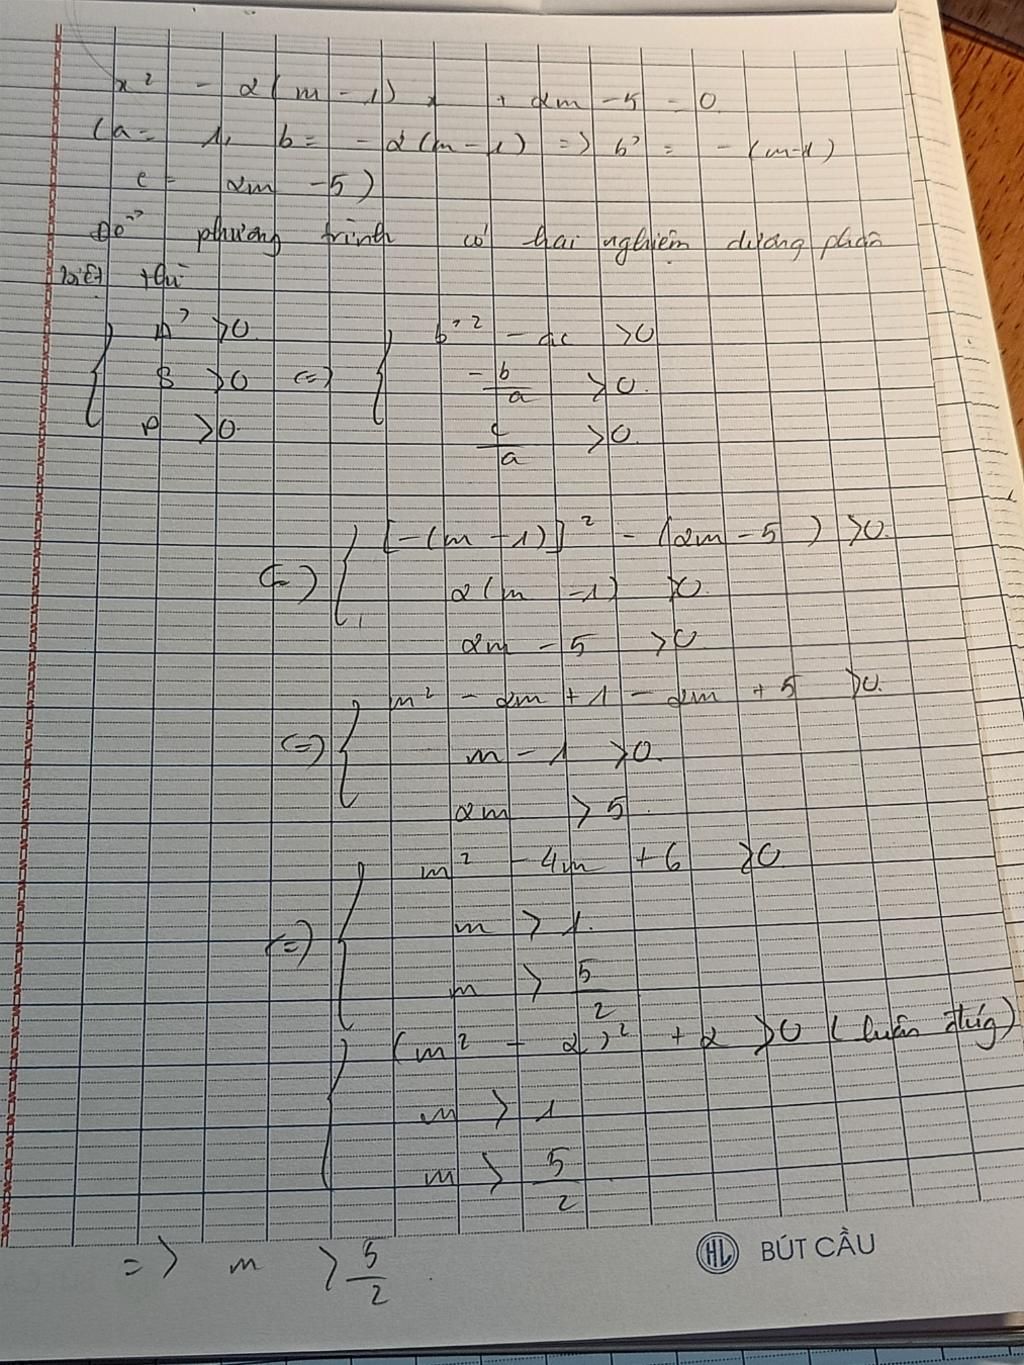 x² - 2(m - 1)x + 2m - 5 = 0
(a = 1, b = -2(m - 1) => b' = -(m-1)
c = 2m - 5)
Để phương trình có hai nghiệm dương phân
biệt thì
{ Δ' > 0 { b'² - ac > 0
S > 0 <=> -b/a > 0
P > 0 c/a > 0
<=> { [-(m - 1)]² - (2m - 5) > 0
2(m - 1) > 0
2m - 5 > 0
<=> { m² - 2m + 1 - 2m + 5 > 0
m - 1 > 0
2m > 5
<=> { m² - 4m + 6 > 0
m > 1
m > 5/2
{ (m² - 2)² + 2 > 0 (luôn đúng)
m > 1
m > 5/2
=> m > 5/2
HL BÚT CẦU